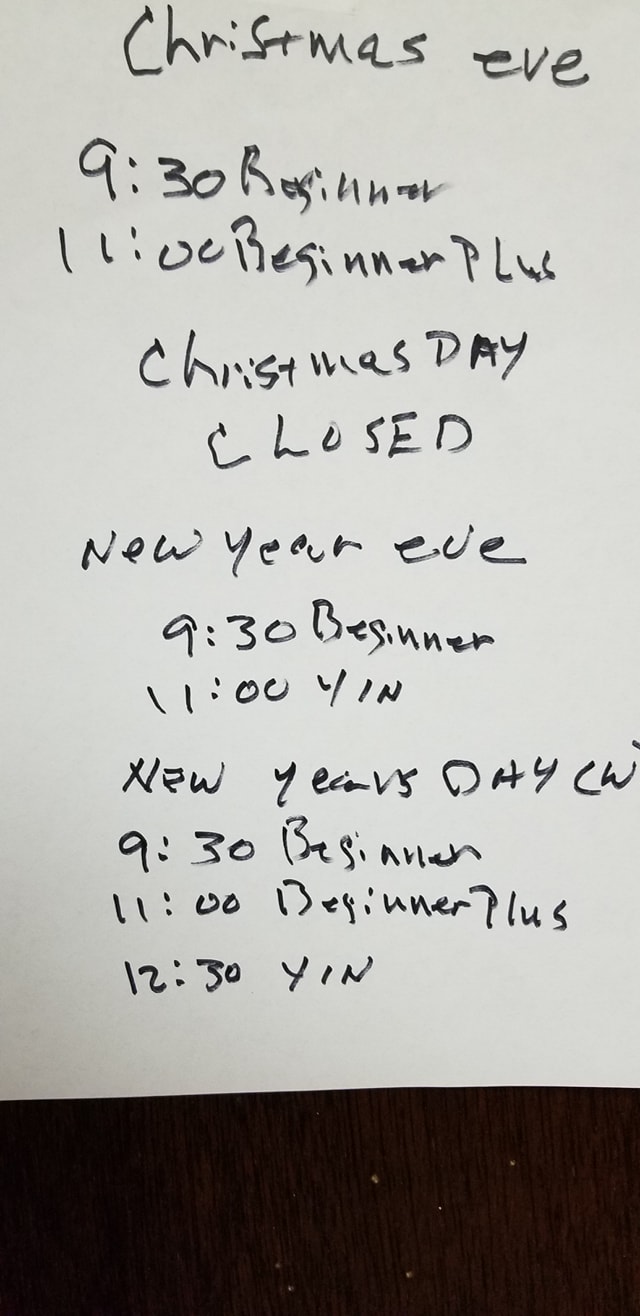 Christmas eve
9:30 Beginner
11:00 Beginner Plus
Christmas DAY
CLOSED
New year eve
9:30 Beginner
11:00 YIN
New years DAY
9:30 Beginner
11:00 Beginner Plus
12:30 YIN